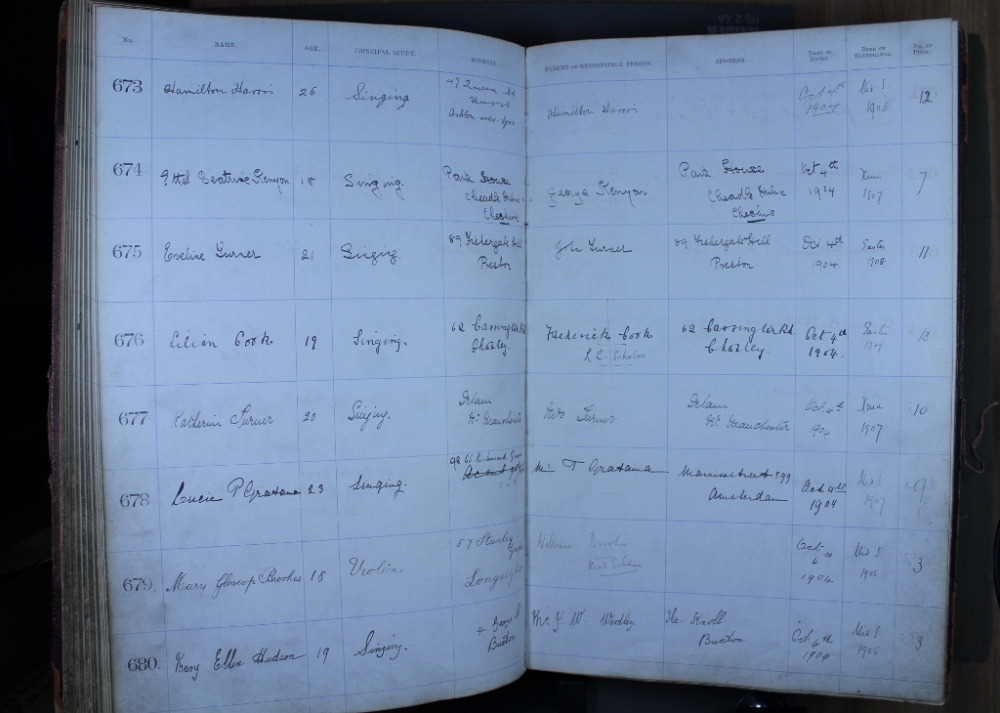 No. NAME. AGE. PRINCIPAL STUDY. ADDRESS. PARENT OR RESPONSIBLE PERSON. ADDRESS. DATE OF ENTRY. DATE OF WITHDRAWAL. NO. OF TERMS.
673 Hamilton Harris 26 Singing 47 Queen St
Hurst
Ashton under Lyne
Hamilton Harris Oct 4th
1904 Mids S.
1908 12
674 Ethel Beatrice Kenyon 18 Singing. Park House
Cheadle Hulme
Cheshire
George Kenyon Park House
Cheadle Hulme
Cheshire
Oct 4th
1904 Xmas
1907 7
675 Eveline Turner 21 Singing 89 Fishergate Hill
Preston
John Turner 89 Fishergate Hill
Preston
Oct. 4th
1904 Easter
1908 11
676 Lilian Cook 19 Singing. 62 Carrington Rd
Chorley
Frederick Cook
L.C. Scholar
62 Carrington Rd.
Chorley.
Oct 4th
1904. Easter
1909 13
677 Katherine Turner 20 Singing. Irlam
Nr. Manchester
Mrs Turner Irlam
Nr. Manchester
Oct. 4th
1904 Xmas
1907 10
678 Lucie P Gratama 23 Singing. 98
T Gratama
Amsterdam
Oct 4th
1904 1907 9
679. Mary Glossop Brookes 18 Violin. 87 Stanley Grove
Longsight
William Brookes
Scholar
Oct
1904 Mids S.
1905 3
680. Mary Ellen Hudson 19 Singing. George St
Buxton
Mr J. W. Wadley The Knoll
Buxton
Oct. 4th
1904 Mids S.
1905 3